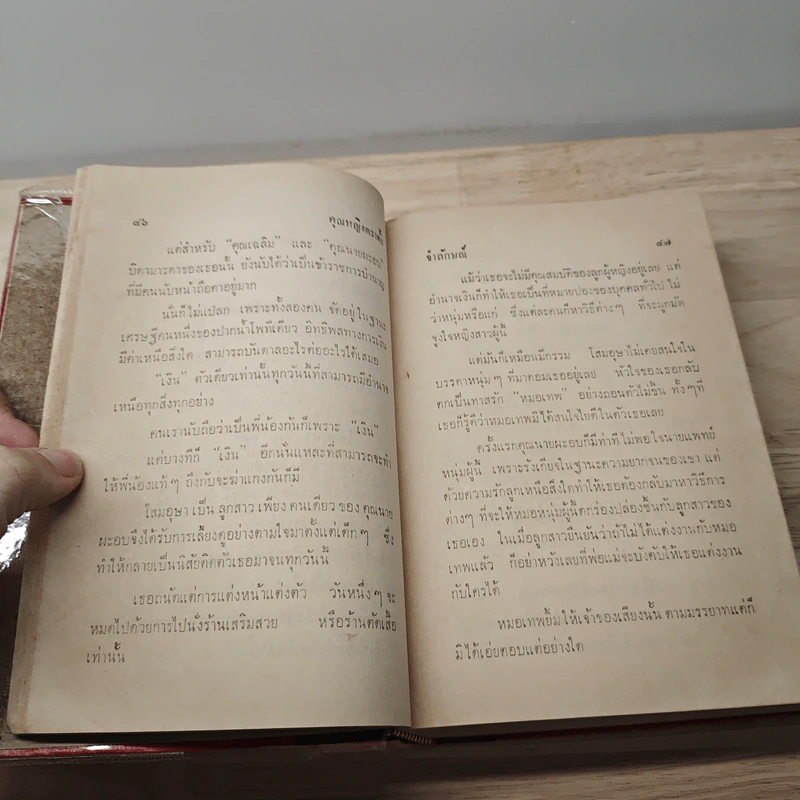 ๔๖
คุณหญิงตราตั้ง
แต่สำหรับ "คุณเฉลิม" และ "คุณนายผะอบ"
บิดามารดาของเธอนั้น ยังนับได้ว่าเป็นข้าราชการบำนาญ
ที่มีคนนับหน้าถือตาอยู่มาก
นั่นก็ไม่แปลก เพราะทั้งสองคน จัดอยู่ในฐานะ
เศรษฐีคนหนึ่งของปากน้ำโพทีเดียว อิทธิพลทางการเงิน
มีค่าเหนือสิ่งใด สามารถบันดาลอะไรต่ออะไรได้เสมอ
"เงิน" ตัวเดียวเท่านั้นทุกวันนี้ที่สามารถมีอำนาจ
เหนือทุกสิ่งทุกอย่าง
คนเรานับถือว่าเป็นพี่น้องกันก็เพราะ "เงิน"
แต่บางทีก็ "เงิน" อีกนั่นแหละที่สามารถจะทำ
ให้พี่น้องแท้ๆ ถึงกับจะฆ่าแกงกันก็มี
โสมอุษา เป็น ลูกสาว เพียง คนเดียว ของ คุณนาย
ผะอบจึงได้รับการเลี้ยงดูอย่างตามใจมาตั้งแต่เด็กๆ ซึ่ง
ทำให้กลายเป็นนิสัยติดตัวเธอมาจนทุกวันนี้
เธอถนัดแต่การแต่งหน้าแต่งตัว วันหนึ่งๆ จะ
หมดไปด้วยการไปนั่งร้านเสริมสวย หรือร้านตัดเสื้อ
เท่านั้น
จำลักษณ์
๔๗
แม้ว่าเธอจะไม่มีคุณสมบัติของลูกผู้หญิงอยู่เลย แต่
อำนาจเงินก็ทำให้เธอเป็นที่หมายปองของบุคคลทั่วไป ไม่
ว่าหนุ่มหรือแก่ ซึ่งแต่ละคนก็หาวิธีต่างๆ ที่จะผูกมัด
จูงใจหญิงสาวผู้นี้
แต่มันก็เหมือนมีกรรม โสมอุษาไม่เคยสนใจใน
บรรดาหนุ่มๆ ที่มาตอมเธออยู่เลย หัวใจของเธอกลับ
ตกเป็นทาสรัก "หมอเทพ" อย่างถอนตัวไม่ขึ้น ทั้งๆที่
เธอก็รู้ดีว่าหมอเทพมิได้สนใจไยดีในตัวเธอเลย
ครั้งแรกคุณนายผะอบก็มีท่าทีไม่พอใจนายแพทย์
หนุ่มผู้นี้ เพราะรังเกียจในฐานะความยากจนของเขา แต่
ด้วยความรักลูกเหนือสิ่งใดทำให้เธอต้องกลับมาหาวิธีการ
ต่างๆ ที่จะให้หมอหนุ่มผู้นี้ตกร่องปล่องชิ้นกับลูกสาวของ
เธอเอง ในเมื่อลูกสาวยืนยันว่าถ้าไม่ได้แต่งงานกับหมอ
เทพแล้ว ก็อย่าหวังเลยที่พ่อแม่จะบังคับให้เธอแต่งงาน
กับใครได้
หมอเทพยิ้มให้เจ้าของเสียงนั้น ตามมรรยาทแต่ก็
มิได้เอ่ยตอบแต่อย่างใด